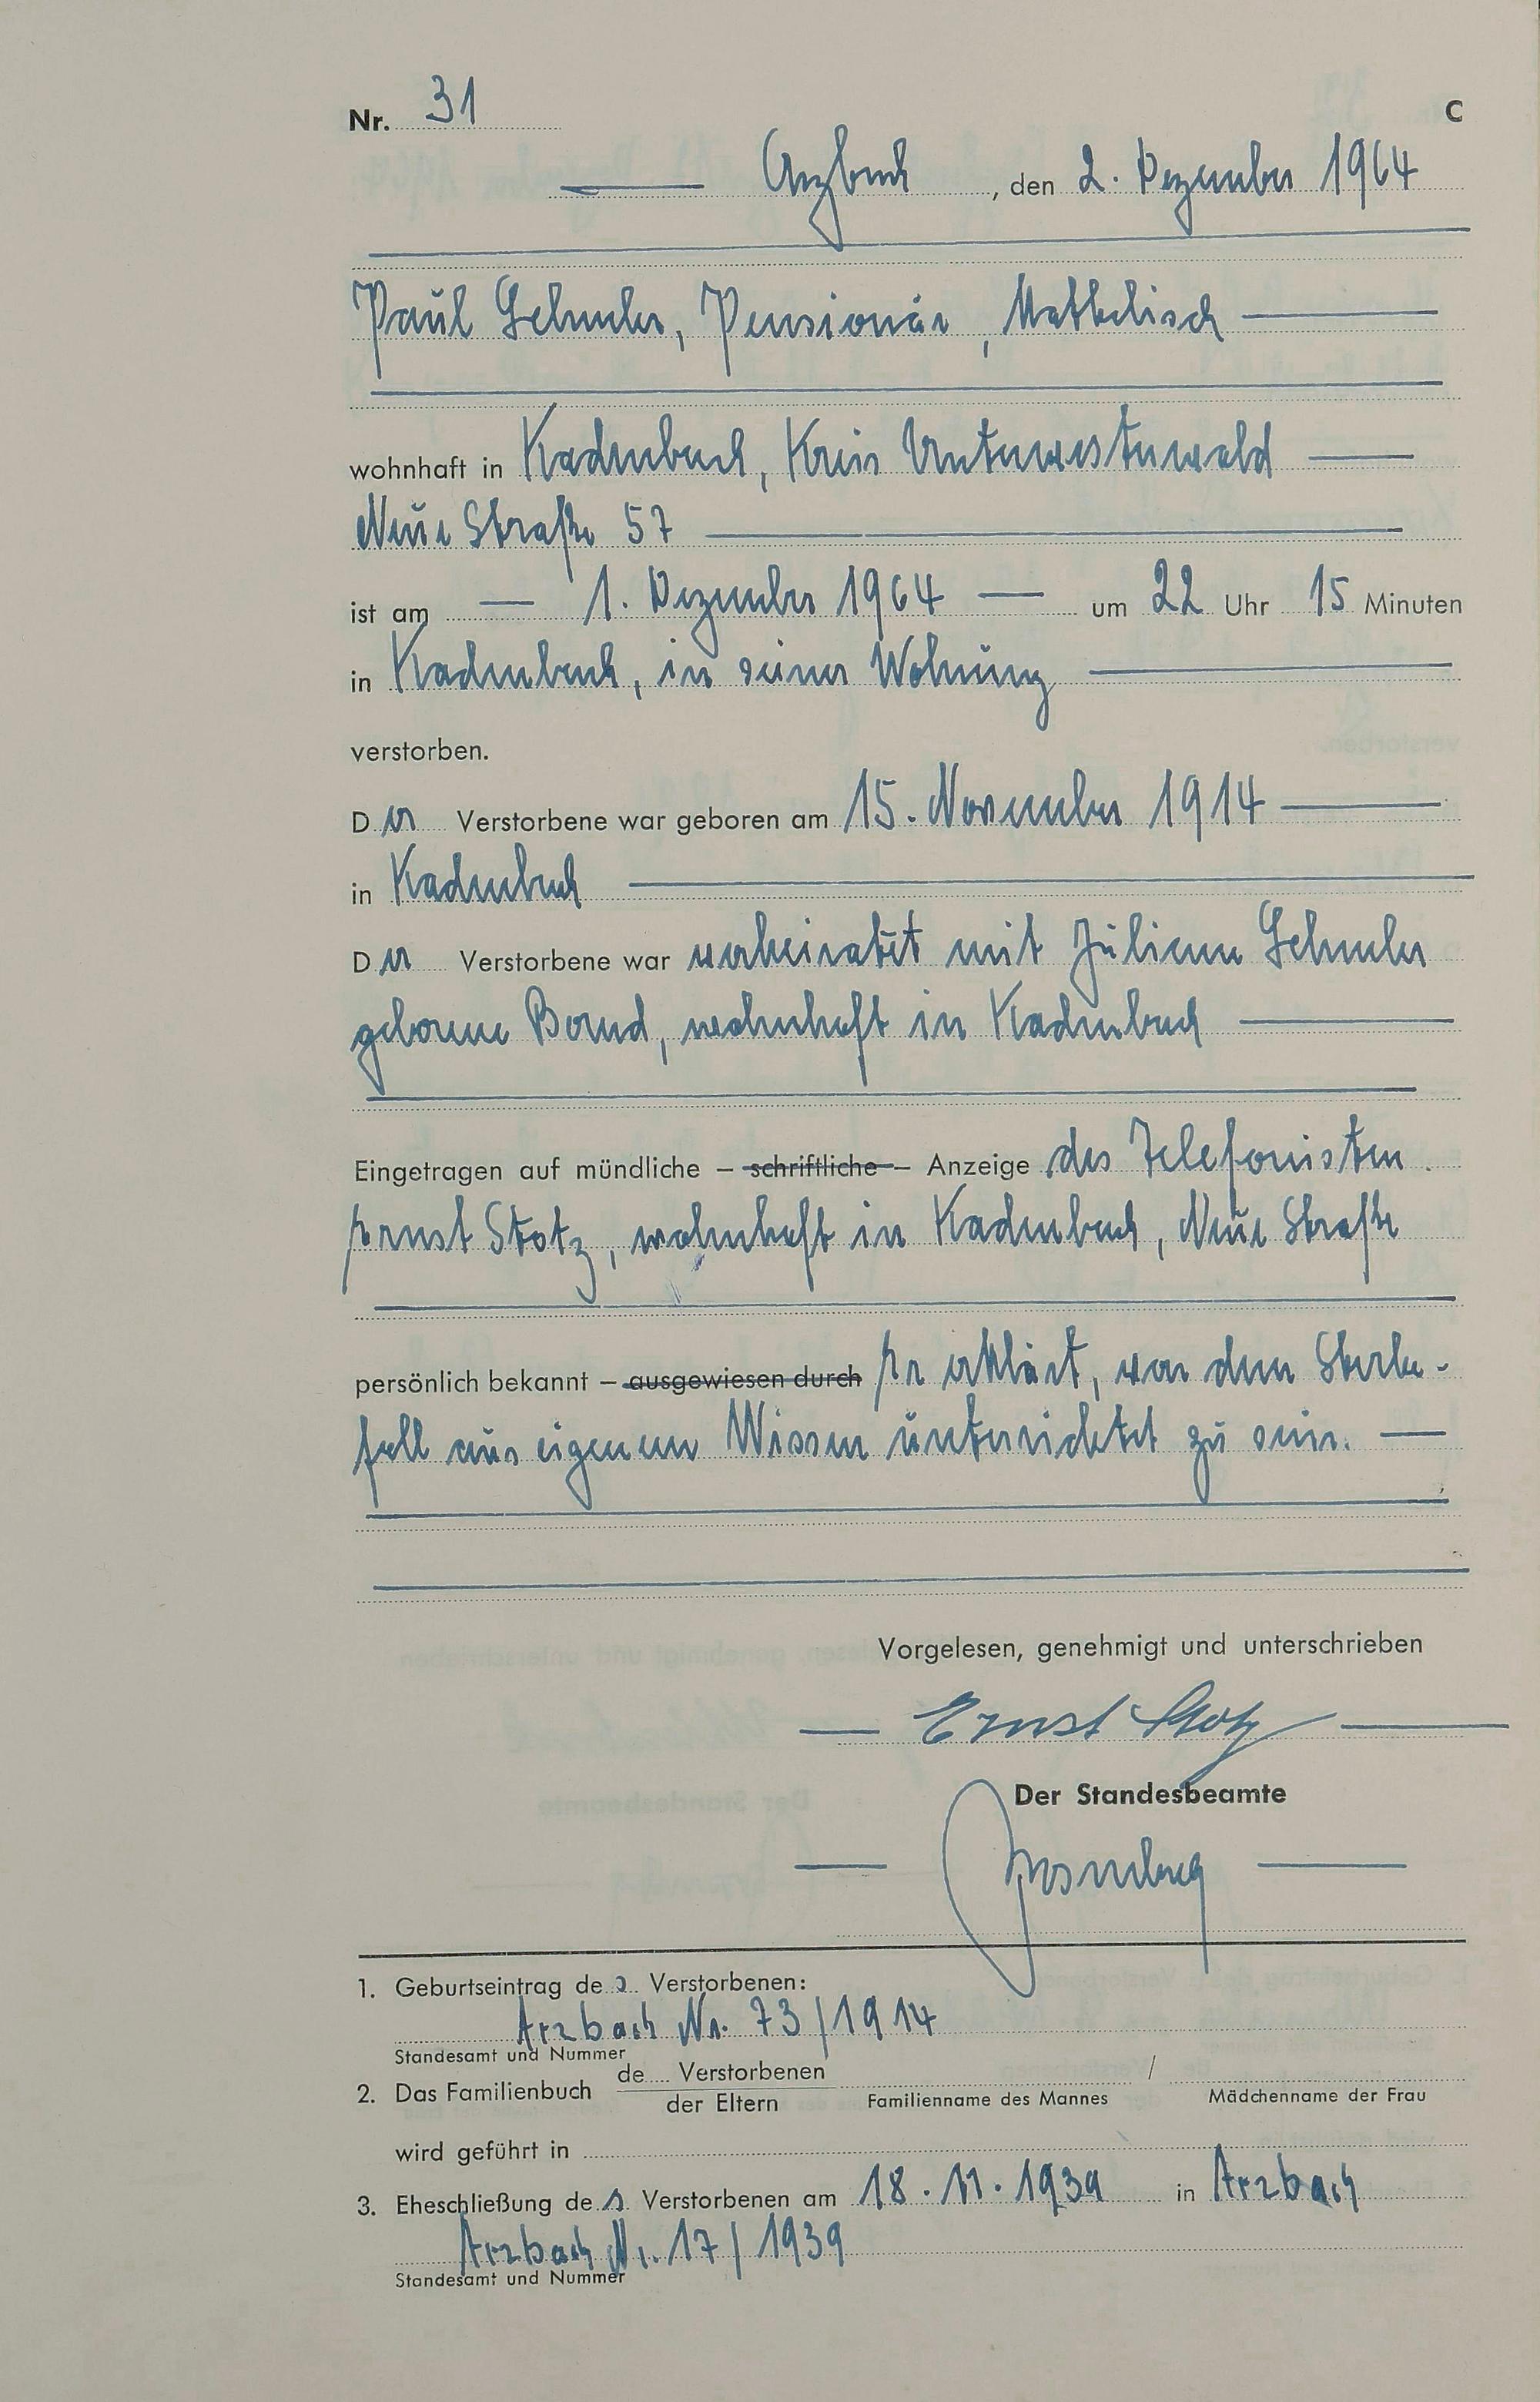 Nr. 31 C
Arzbach, den 2. Dezember 1964
Paul Gehmler, Pensionär, kathelisch
wohnhaft in Kadenbach, Kreis Unterwesterwald
Neue Straße 57
ist am 1. Dezember 1964 um 22 Uhr 15 Minuten
in Kadenbach, in seiner Wohnung
verstorben.
Der Verstorbene war geboren am 15. November 1914
in Kadenbach
Der Verstorbene war verheiratet mit Juliane
geborene wohnhaft in Kadenbach
Eingetragen auf mündliche – schriftliche – Anzeige des Telefonisten
Ernst Stotz, wohnhaft in Kadenbach, Neue Straße
persönlich bekannt – ausgewiesen durch Er erklärt, von dem Sterbe-
fall aus eigenem Wissen unterrichtet zu sein.
Vorgelesen, genehmigt und unterschrieben
Ernst Stotz
Der Standesbeamte
1. Geburtseintrag des Verstorbenen:
Arzbach Nr. 73/1914
Standesamt und Nummer
2. Das Familienbuch de Verstorbenen /
der Eltern Familienname des Mannes Mädchenname der Frau
wird geführt in
3. Eheschließung des Verstorbenen am 18.11.1939 in Arzbach
Arzbach Nr. 17/1939
Standesamt und Nummer